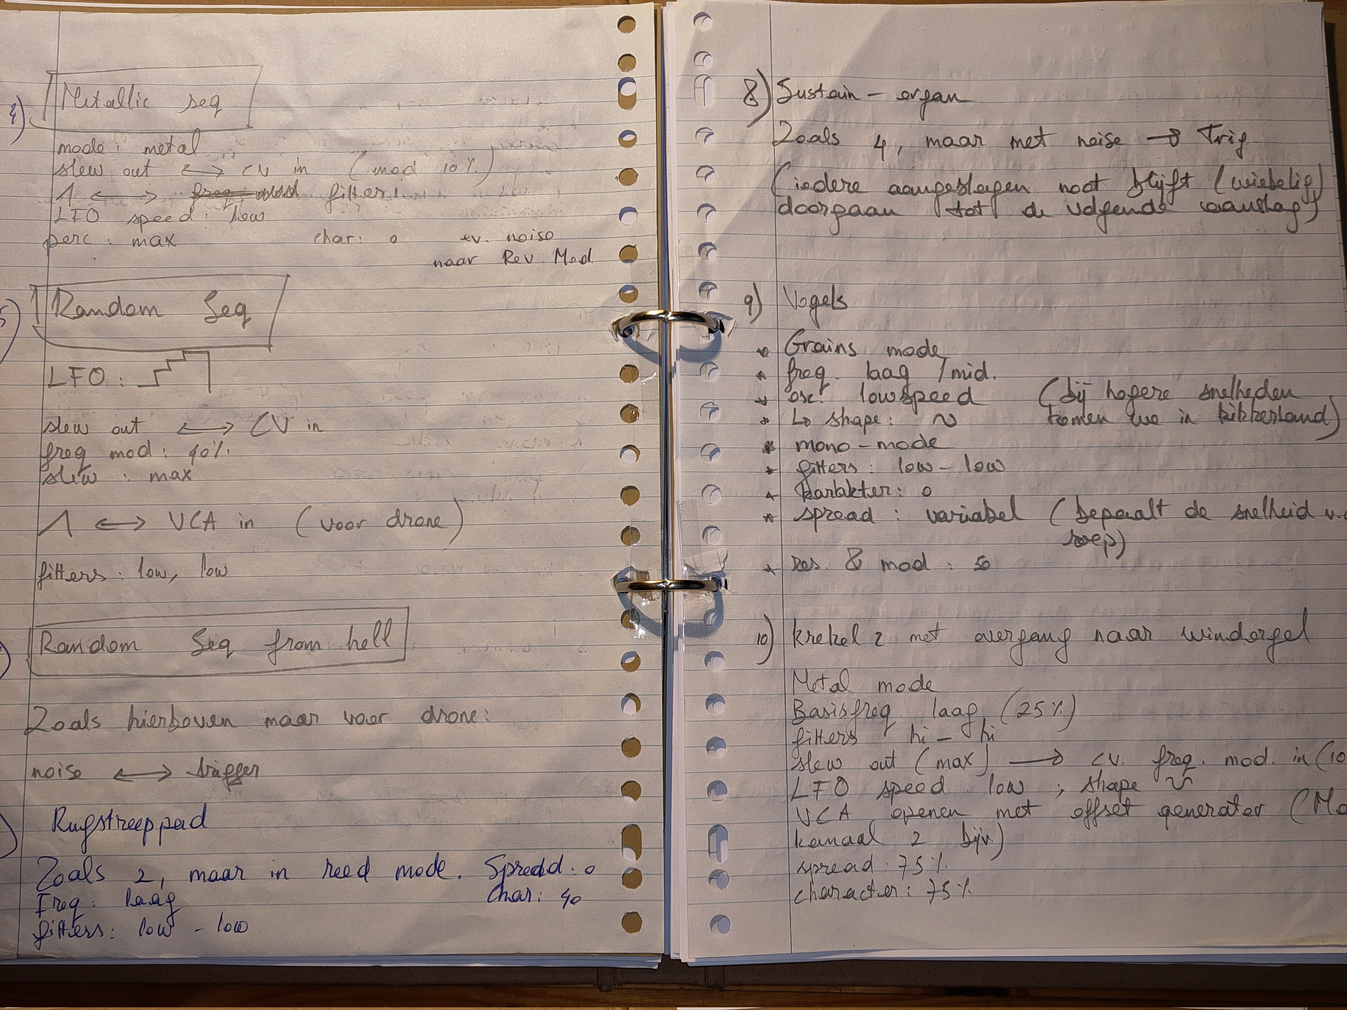 4) Metallic seq
mode: metal
slew out ⟷ CV in (mod 10%)
Λ ⟷ freq mod filter!
LFO speed: low
perc: max char: 0 ev. noise
naar Rev Mod
5) Random Seq
LFO:
slew out ⟷ CV in
freq mod: 90%
slew: max
Λ ⟷ VCA in (voor drone)
filters: low, low
) Random Seq from hell
Zoals hierboven maar voor drone:
noise ⟷ trigger
) Rugstreeppad
Zoals 2, maar in reed mode. Spread: 0
Freq: laag Char: 40
filters: low - low
8) Sustain - organ
Zoals 4, maar met noise → Trig
(iedere aangeslagen noot blijft (wiebelig)
doorgaan tot de volgende aanslag)
9) Vogels
* Grains mode
* freq. laag/mid.
* osc. low speed (bij hogere snelheden
* ↳ shape: ∿ komen we in kikkerland)
* mono-mode
* filters: low - low
* karakter: 0
* spread: variabel (bepaalt de snelheid v.d
roep)
* res. & mod: 50
10) Krekel 2 met overgang naar windorgel
Metal mode
Basisfreq laag (25%)
filters hi - hi
slew out (max) → cv. freq. mod. in (10
LFO speed low ; shape ∿
VCA openen met offset generator (Ma
kanaal 2 bijv)
spread: 75%
character: 75%